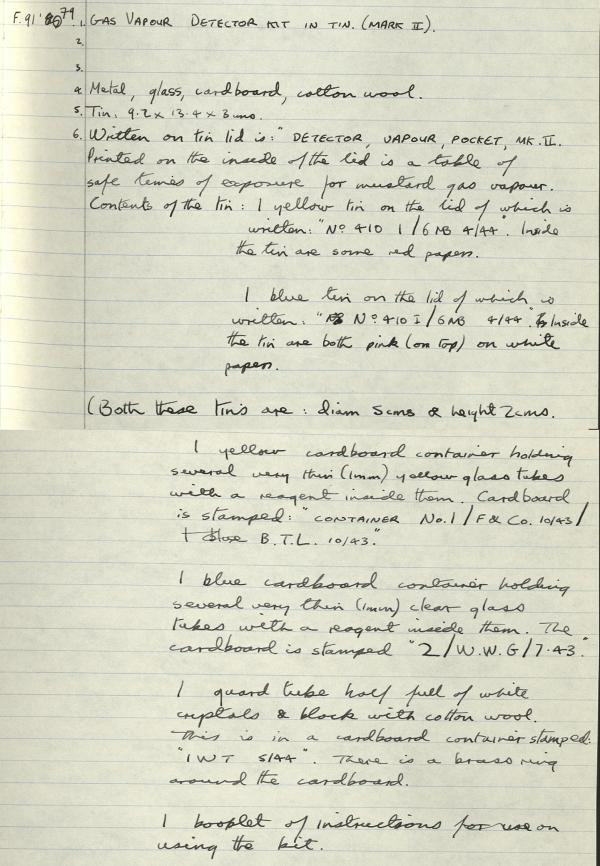 F.91'79. 1. GAS VAPOUR DETECTOR KIT IN TIN. (MARK II).
2.
3.
4. Metal, glass, cardboard, cotton wool.
5. Tin: 9.2 x 13.4 x 3 cms.
6. Written on tin lid is: "DETECTOR, VAPOUR, POCKET, MK.II.
Printed on the inside of the lid is a table of
safe times of exposure for mustard gas vapour.
Contents of the tin: 1 yellow tin on the lid of which is
written: "No 410 1/6 NB 4/44". Inside
the tin are some red papers.
1 blue tin on the lid of which is
written: "No 410 I/6NB 4/44". Inside
the tin are both pink (on top) on white
papers.
(Both these tins are: diam 5cms & height 2cms.
1 yellow cardboard container holding
several very thin (1mm) yellow glass tubes
with a reagent inside them. Cardboard
is stamped: "CONTAINER No.1/F & Co. 10/43/
B.T.L. 10/43."
1 blue cardboard container holding
several very thin (1mm) clear glass
tubes with a reagent inside them. The
cardboard is stamped "2/W.W.G/7.43."
1 guard tube half full of white
crystals & block with cotton wool.
This is in a cardboard container stamped:
"IWT 5/44". There is a brass ring
around the cardboard.
1 booplet of instructions for use on
using the kit.